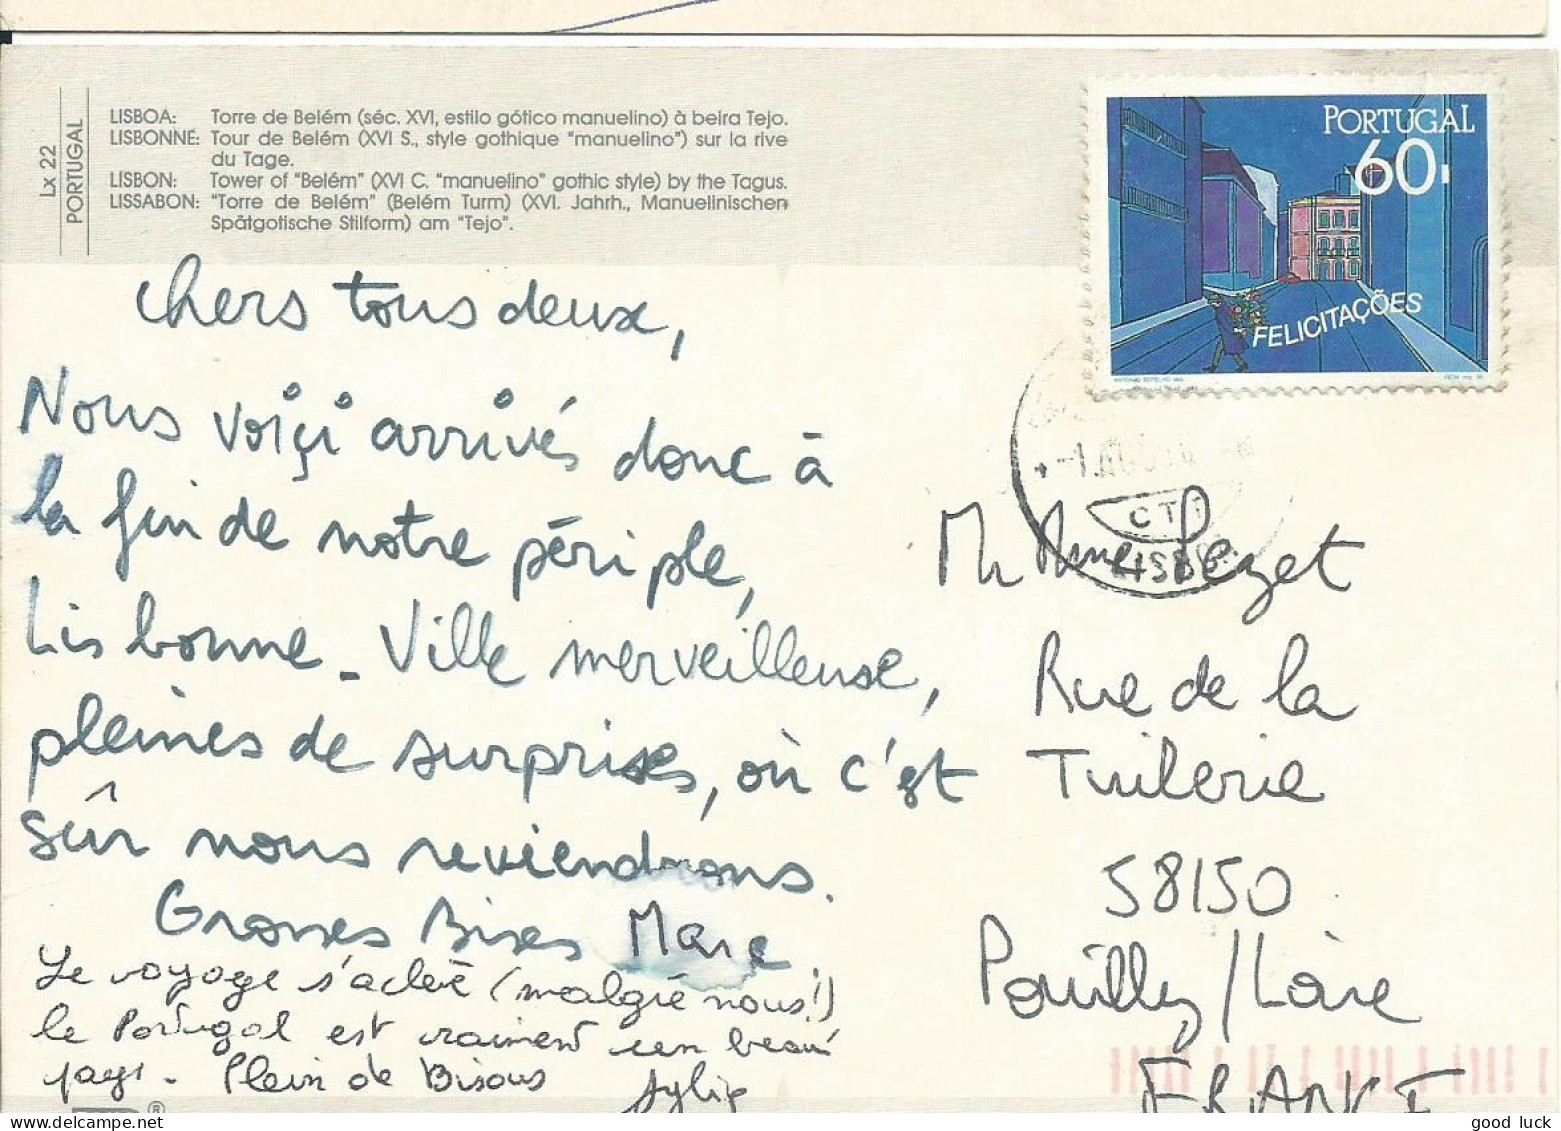 Lx 22
PORTUGAL
LISBOA: Torre de Belém (séc. XVI, estilo gótico manuelino) à beira Tejo.
LISBONNE: Tour de Belém (XVI S., style gothique "manuelino") sur la rive
du Tage.
LISBON: Tower of "Belém" (XVI C. "manuelino" gothic style) by the Tagus.
LISSABON: "Torre de Belém" (Belém Turm) (XVI. Jahrh., Manuelinischen
Spätgotische Stilform) am "Tejo".
PORTUGAL
60
FELICITAÇÕES
Chers tous deux,
Nous voiçi arrivés donc à
la fin de notre périple,
Lisbonne - Ville merveilleuse,
pleines de surprises, où c'est
sûr nous reviendrons.
Grosses Bises Marc
Le voyage s'achève (malgré nous!)
le Portugal est vraiment un beau
pays - Plein de Bisous
CTT
LISBOA
Mr Mme Pezet
Rue de la
Tuilerie
58150
Pouilly / Loire
FRANCE
good luck